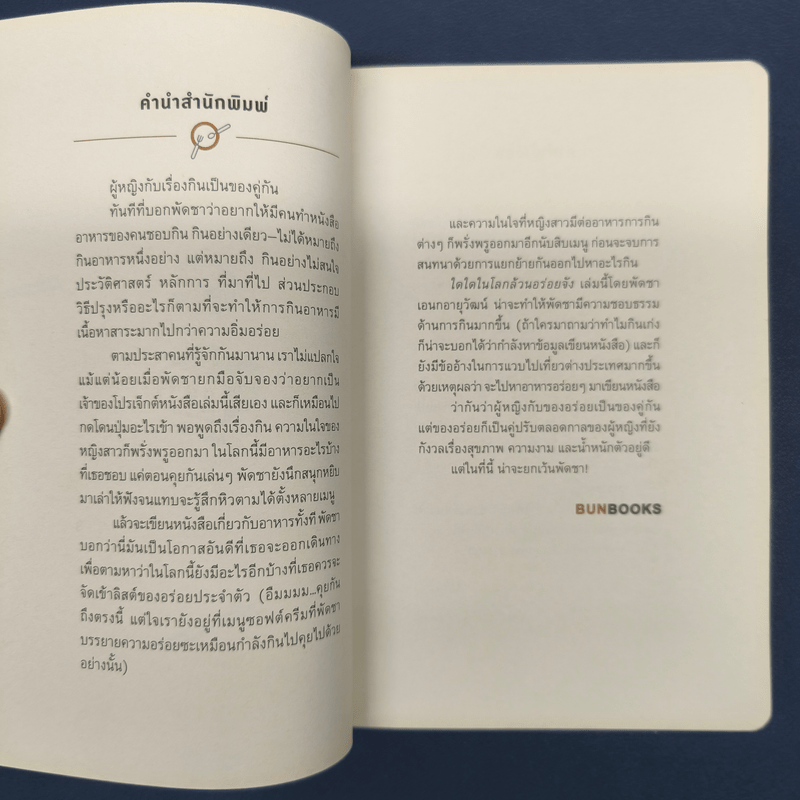 คำนำสำนักพิมพ์
ผู้หญิงกับเรื่องกินเป็นของคู่กัน
ทันทีที่บอกพัดชาว่าอยากให้มีคนทำหนังสือ
อาหารของคนชอบกิน กินอย่างเดียว–ไม่ได้หมายถึง
กินอาหารหนึ่งอย่าง แต่หมายถึง กินอย่างไม่สนใจ
ประวัติศาสตร์ หลักการ ที่มาที่ไป ส่วนประกอบ
วิธีปรุงหรืออะไรก็ตามที่จะทำให้การกินอาหารมี
เนื้อหาสาระมากไปกว่าความอิ่มอร่อย
ตามประสาคนที่รู้จักกันมานาน เราไม่แปลกใจ
แม้แต่น้อยเมื่อพัดชายกมือจับจองว่าอยากเป็น
เจ้าของโปรเจ็กต์หนังสือเล่มนี้เสียเอง และก็เหมือนไป
กดโดนปุ่มอะไรเข้า พอพูดถึงเรื่องกิน ความในใจของ
หญิงสาวก็พรั่งพรูออกมา ในโลกนี้มีอาหารอะไรบ้าง
ที่เธอชอบ แค่ตอนคุยกันเล่นๆ พัดชายังนึกสนุกหยิบ
มาเล่าให้ฟังจนแทบจะรู้สึกหิวตามได้ตั้งหลายเมนู
แล้วจะเขียนหนังสือเกี่ยวกับอาหารทั้งที พัดชา
บอกว่านี่มันเป็นโอกาสอันดีที่เธอจะออกเดินทาง
เพื่อตามหาว่าในโลกนี้ยังมีอะไรอีกบ้างที่เธอควรจะ
จัดเข้าลิสต์ของอร่อยประจำตัว (อืมมมม...คุยกัน
ถึงตรงนี้ แต่ใจเรายังอยู่ที่เมนูซอฟต์ครีมที่พัดชา
บรรยายความอร่อยซะเหมือนกำลังกินไปคุยไปด้วย
อย่างนั้น)
และความในใจที่หญิงสาวมีต่ออาหารการกิน
ต่างๆ ก็พรั่งพรูออกมาอีกนับสิบเมนู ก่อนจะจบการ
สนทนาด้วยการแยกย้ายกันออกไปหาอะไรกิน
ใดใดในโลกล้วนอร่อยจัง เล่มนี้โดยพัดชา
เอนกอายุวัฒน์ น่าจะทำให้พัดชามีความชอบธรรม
ด้านการกินมากขึ้น (ถ้าใครมาถามว่าทำไมกินเก่ง
ก็น่าจะบอกได้ว่ากำลังหาข้อมูลเขียนหนังสือ) และก็
ยังมีข้ออ้างในการแวบไปเที่ยวต่างประเทศมากขึ้น
ด้วยเหตุผลว่า จะไปหาอาหารอร่อยๆ มาเขียนหนังสือ
ว่ากันว่าผู้หญิงกับของอร่อยเป็นของคู่กัน
แต่ของอร่อยก็เป็นคู่ปรับตลอดกาลของผู้หญิงที่ยัง
กังวลเรื่องสุขภาพ ความงาม และน้ำหนักตัวอยู่ดี
แต่ในที่นี้ น่าจะยกเว้นพัดชา!
BUNBOOKS